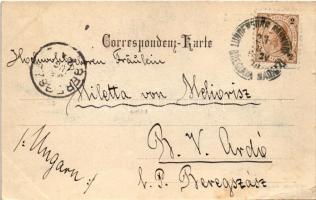 Correspondenz-Karte
2
Hochwohlgeboren Fräulein
Miletta von Meliorisz
B. V. Ardó
u. P. Beregszász
/: Ungarn :/